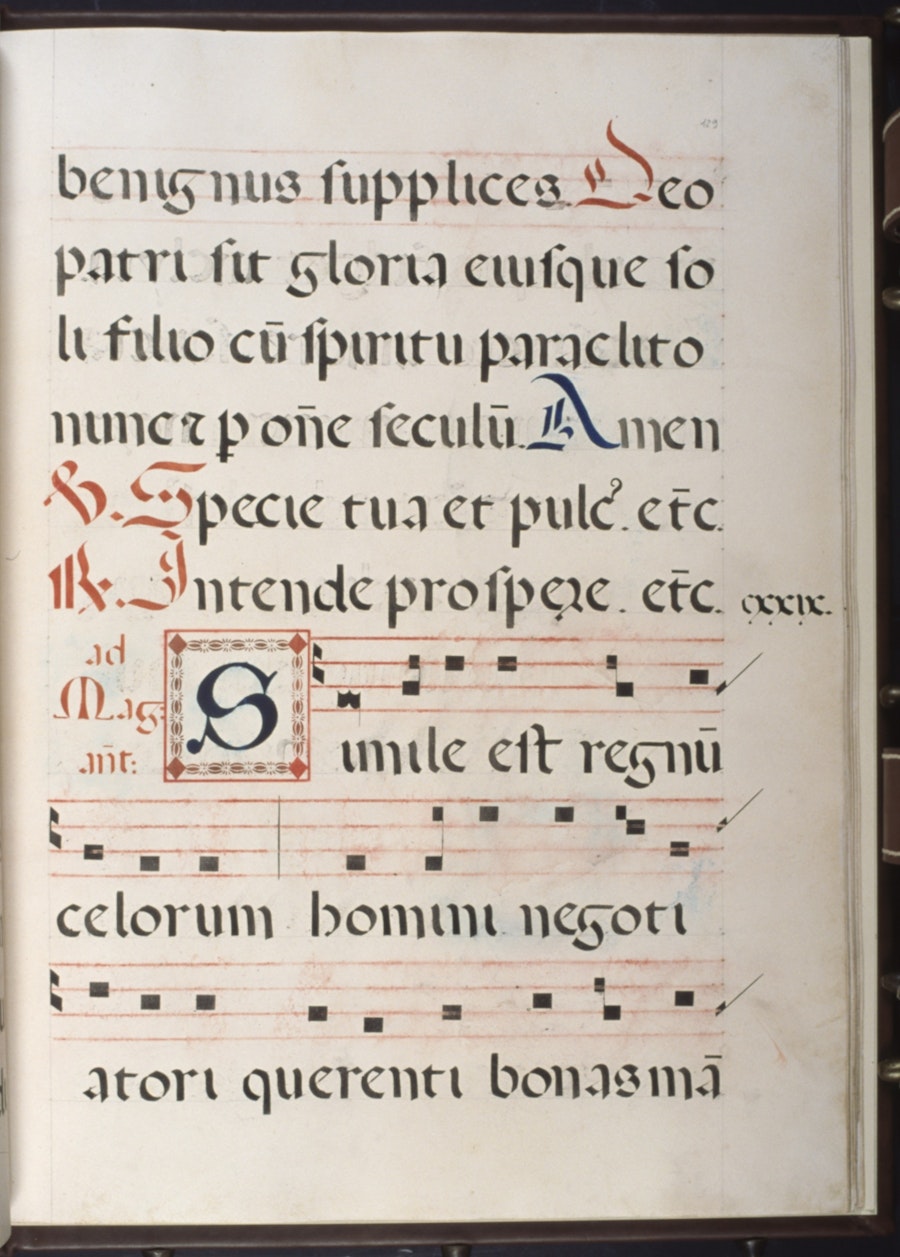 129
benignus ſupplices Deo
patri ſit gloria eiuſque ſo
li filio cū ſpiritu paraclito
nunc ꝛ ꝑ on̄e ſeculū. Amen
℣. Specie tua et pulc̉. et̄c.
℟. Intende proſpere. et̄c. cxxix.
ad
Mag:
an̄t:
Simile eſt regnū
celorum homini negoti
atori querenti bonas mā